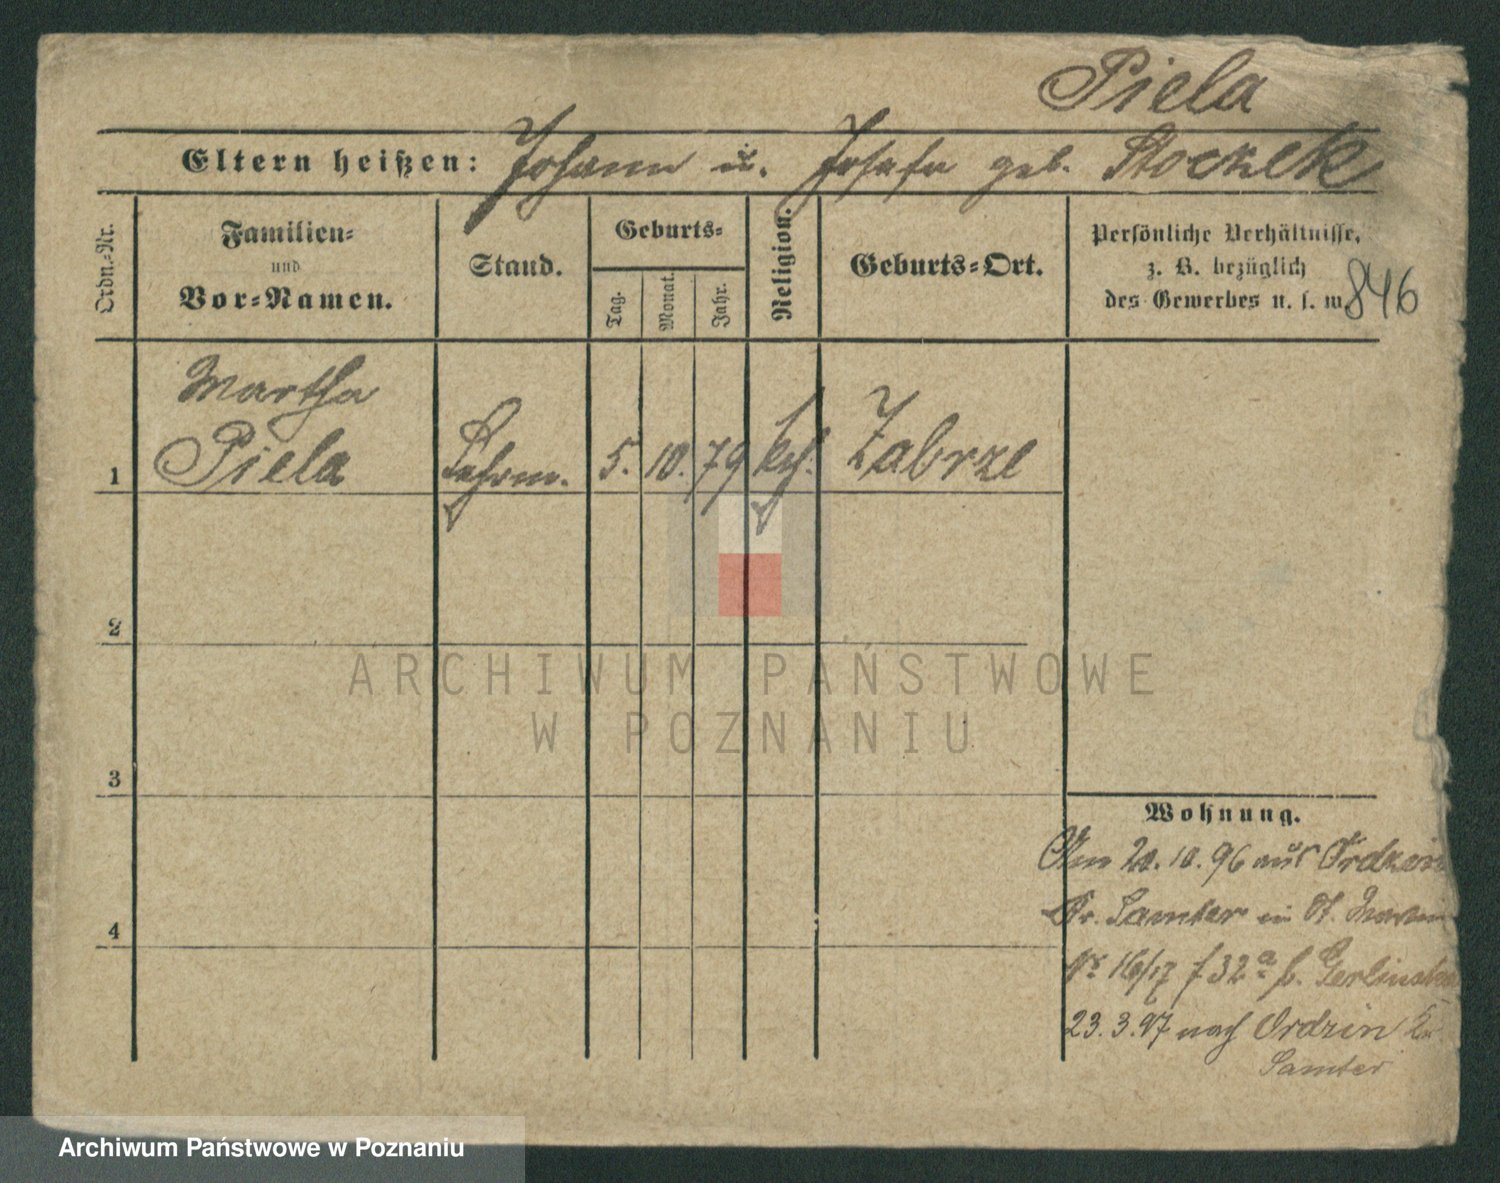 Piela
Eltern heißen: Johann u. Josefa geb. Stockek
Ordn.-Nr.
Familien-
und
Vor-Namen.
Stand.
Geburts-
Tag.
Monat.
Jahr.
Religion.
Geburts-Ort.
Persönliche Verhältnisse,
z. B. bezüglich
des Gewerbes u. s. w.
846
Martha
1 Piela 5. 10. 79 kth. Zabrze
2
ARCHIWUM PAŃSTWOWE
W POZNANIU
3
Wohnung.
Am 20.10.96 aus
Kr. Samter in St. Martin
Nr 16/17 f 32a b.
23.3.97 nach Ordzin Kr
Samter
4
Archiwum Państwowe w Poznaniu